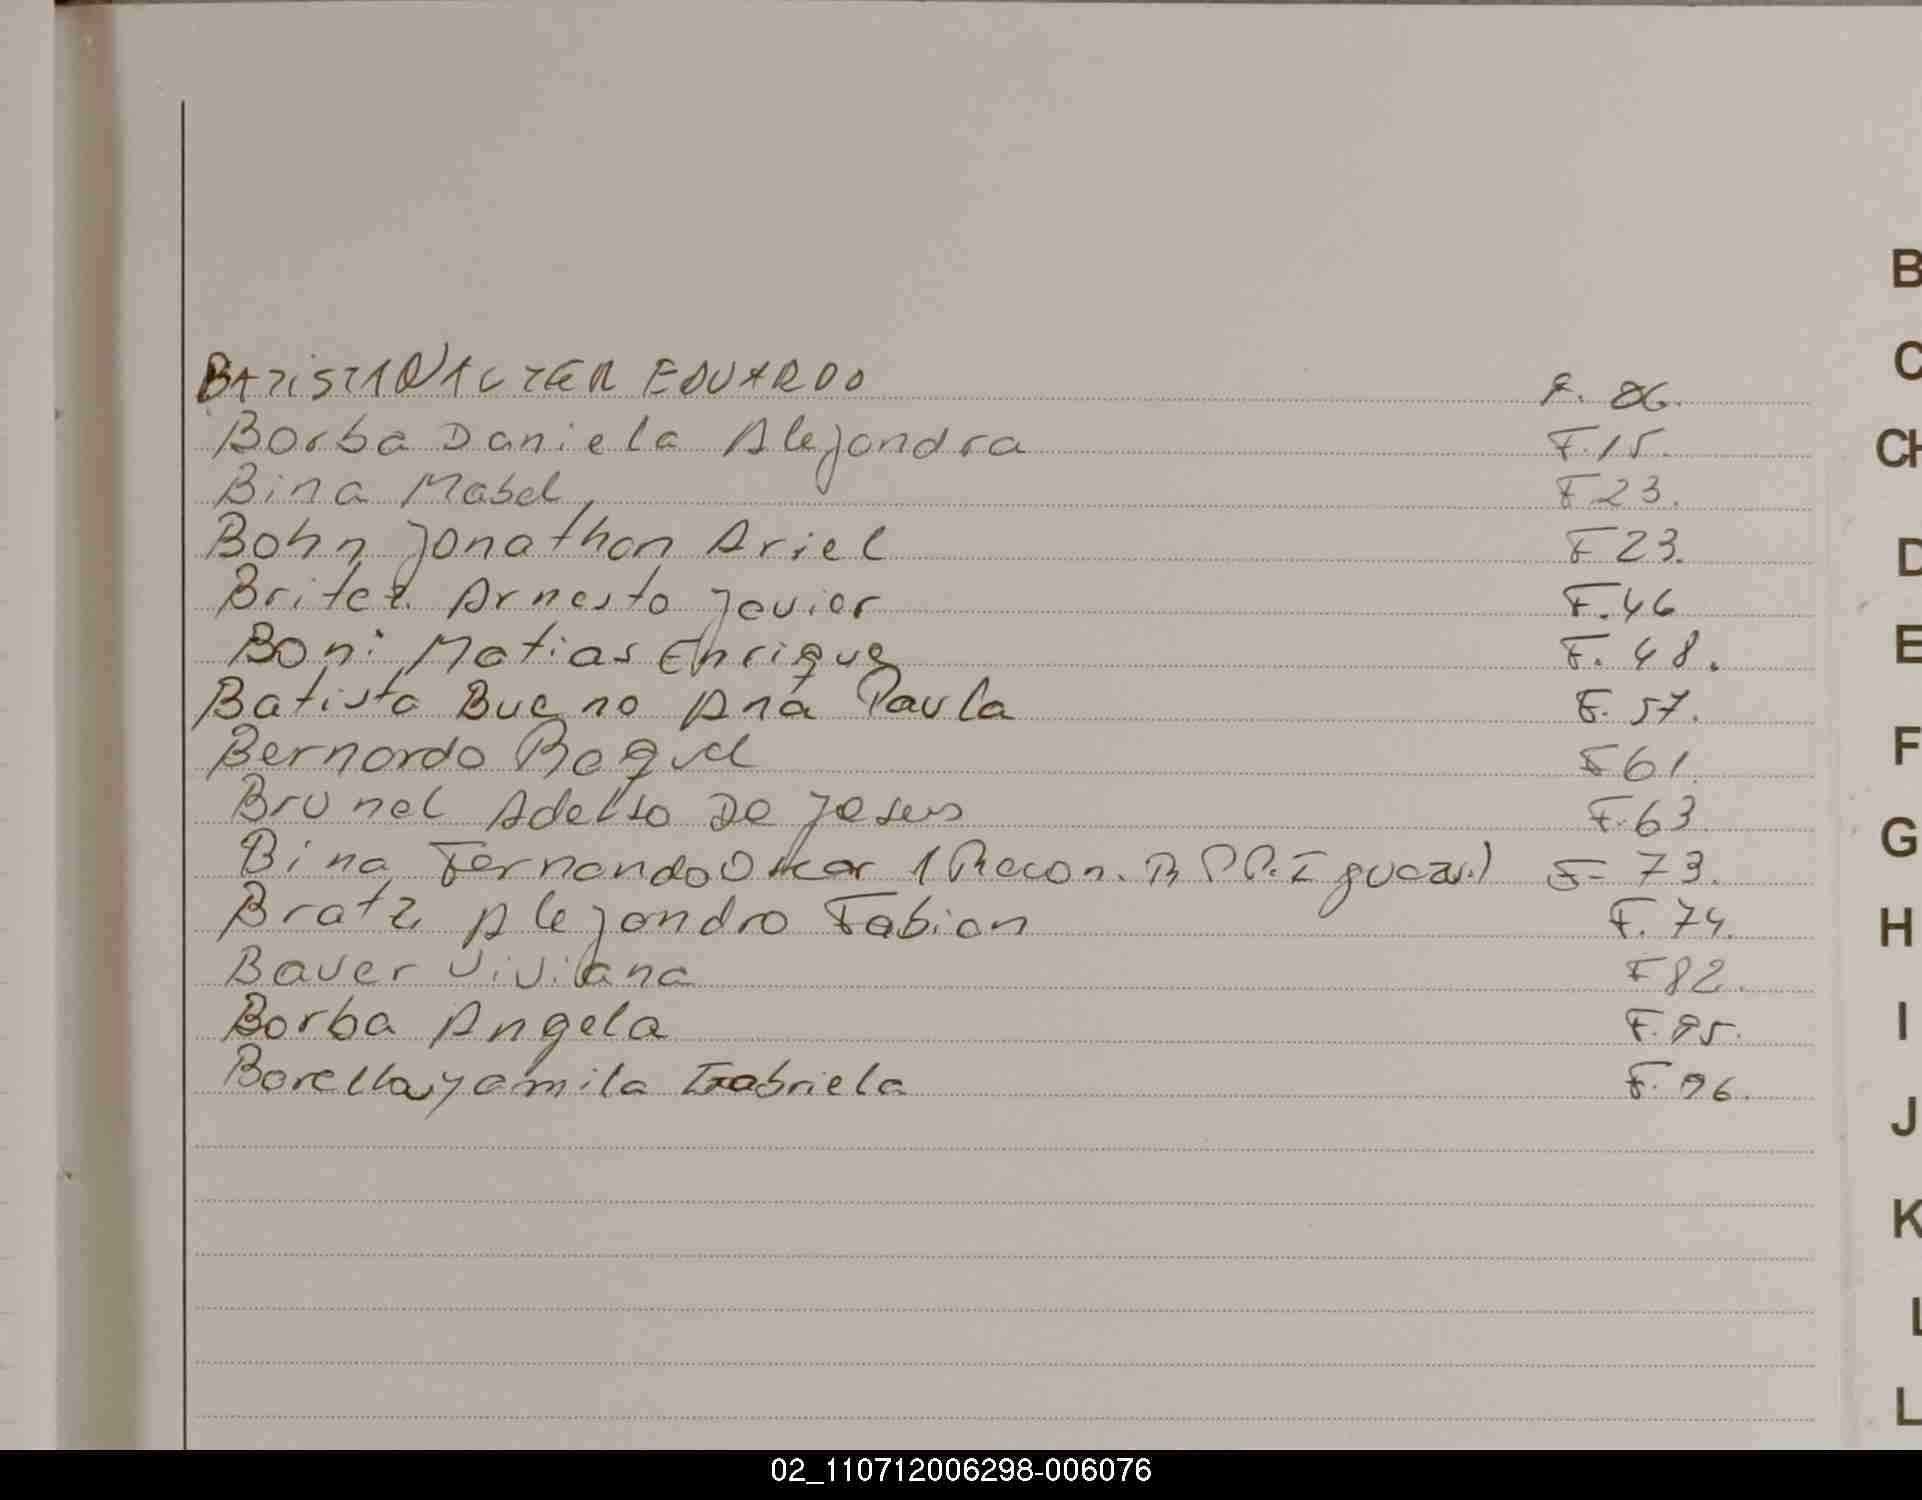 BATISTA WALTER EDUARDO F. 06.
Borba Daniela Alejandra F.15.
Bina Mabel F 23.
Bohn Jonathan Ariel F 23.
Britez Arnesto Javier F.46
Boni Matias Enrique F. 48.
Batista Bueno Ana Paula F. 57.
Bernardo Raquel F 61.
Brunel Adelso De Jesus F.63.
Bina Fernando Oscar (Recon. R PP. Iguazu.) F- 73.
Bratz Alejandro Fabian F. 74.
Bauer Viviana F 82.
Borba Angela F. 95.
Borella Yamila Gabriela F. 96.
B
C
CH
D
E
F
G
H
I
J
K
L
L
02_110712006298-006076